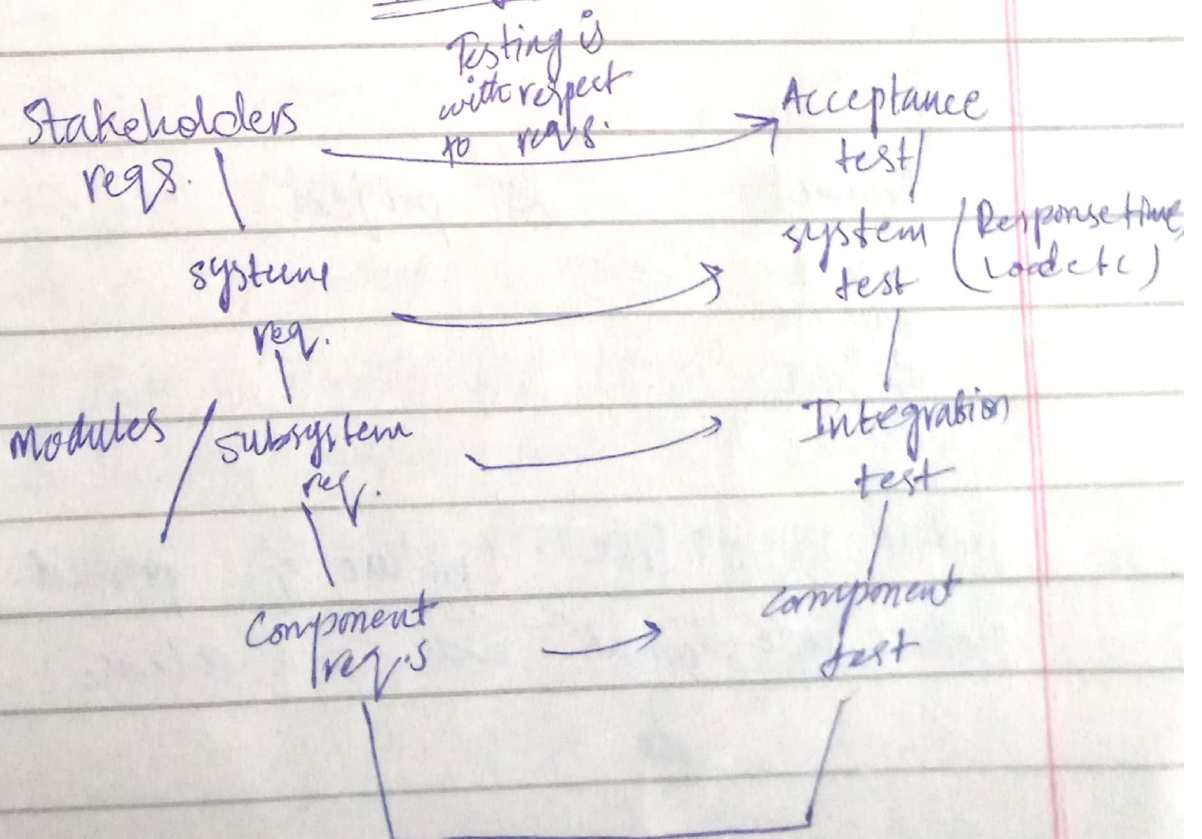 Testing is
with respect
to reqs.
Stakeholders
reqs.
Acceptance
test
system
req.
system
test
(Response time,
Load etc)
Modules
Subsystem
req.
Integration
test
Component
reqs
component
test